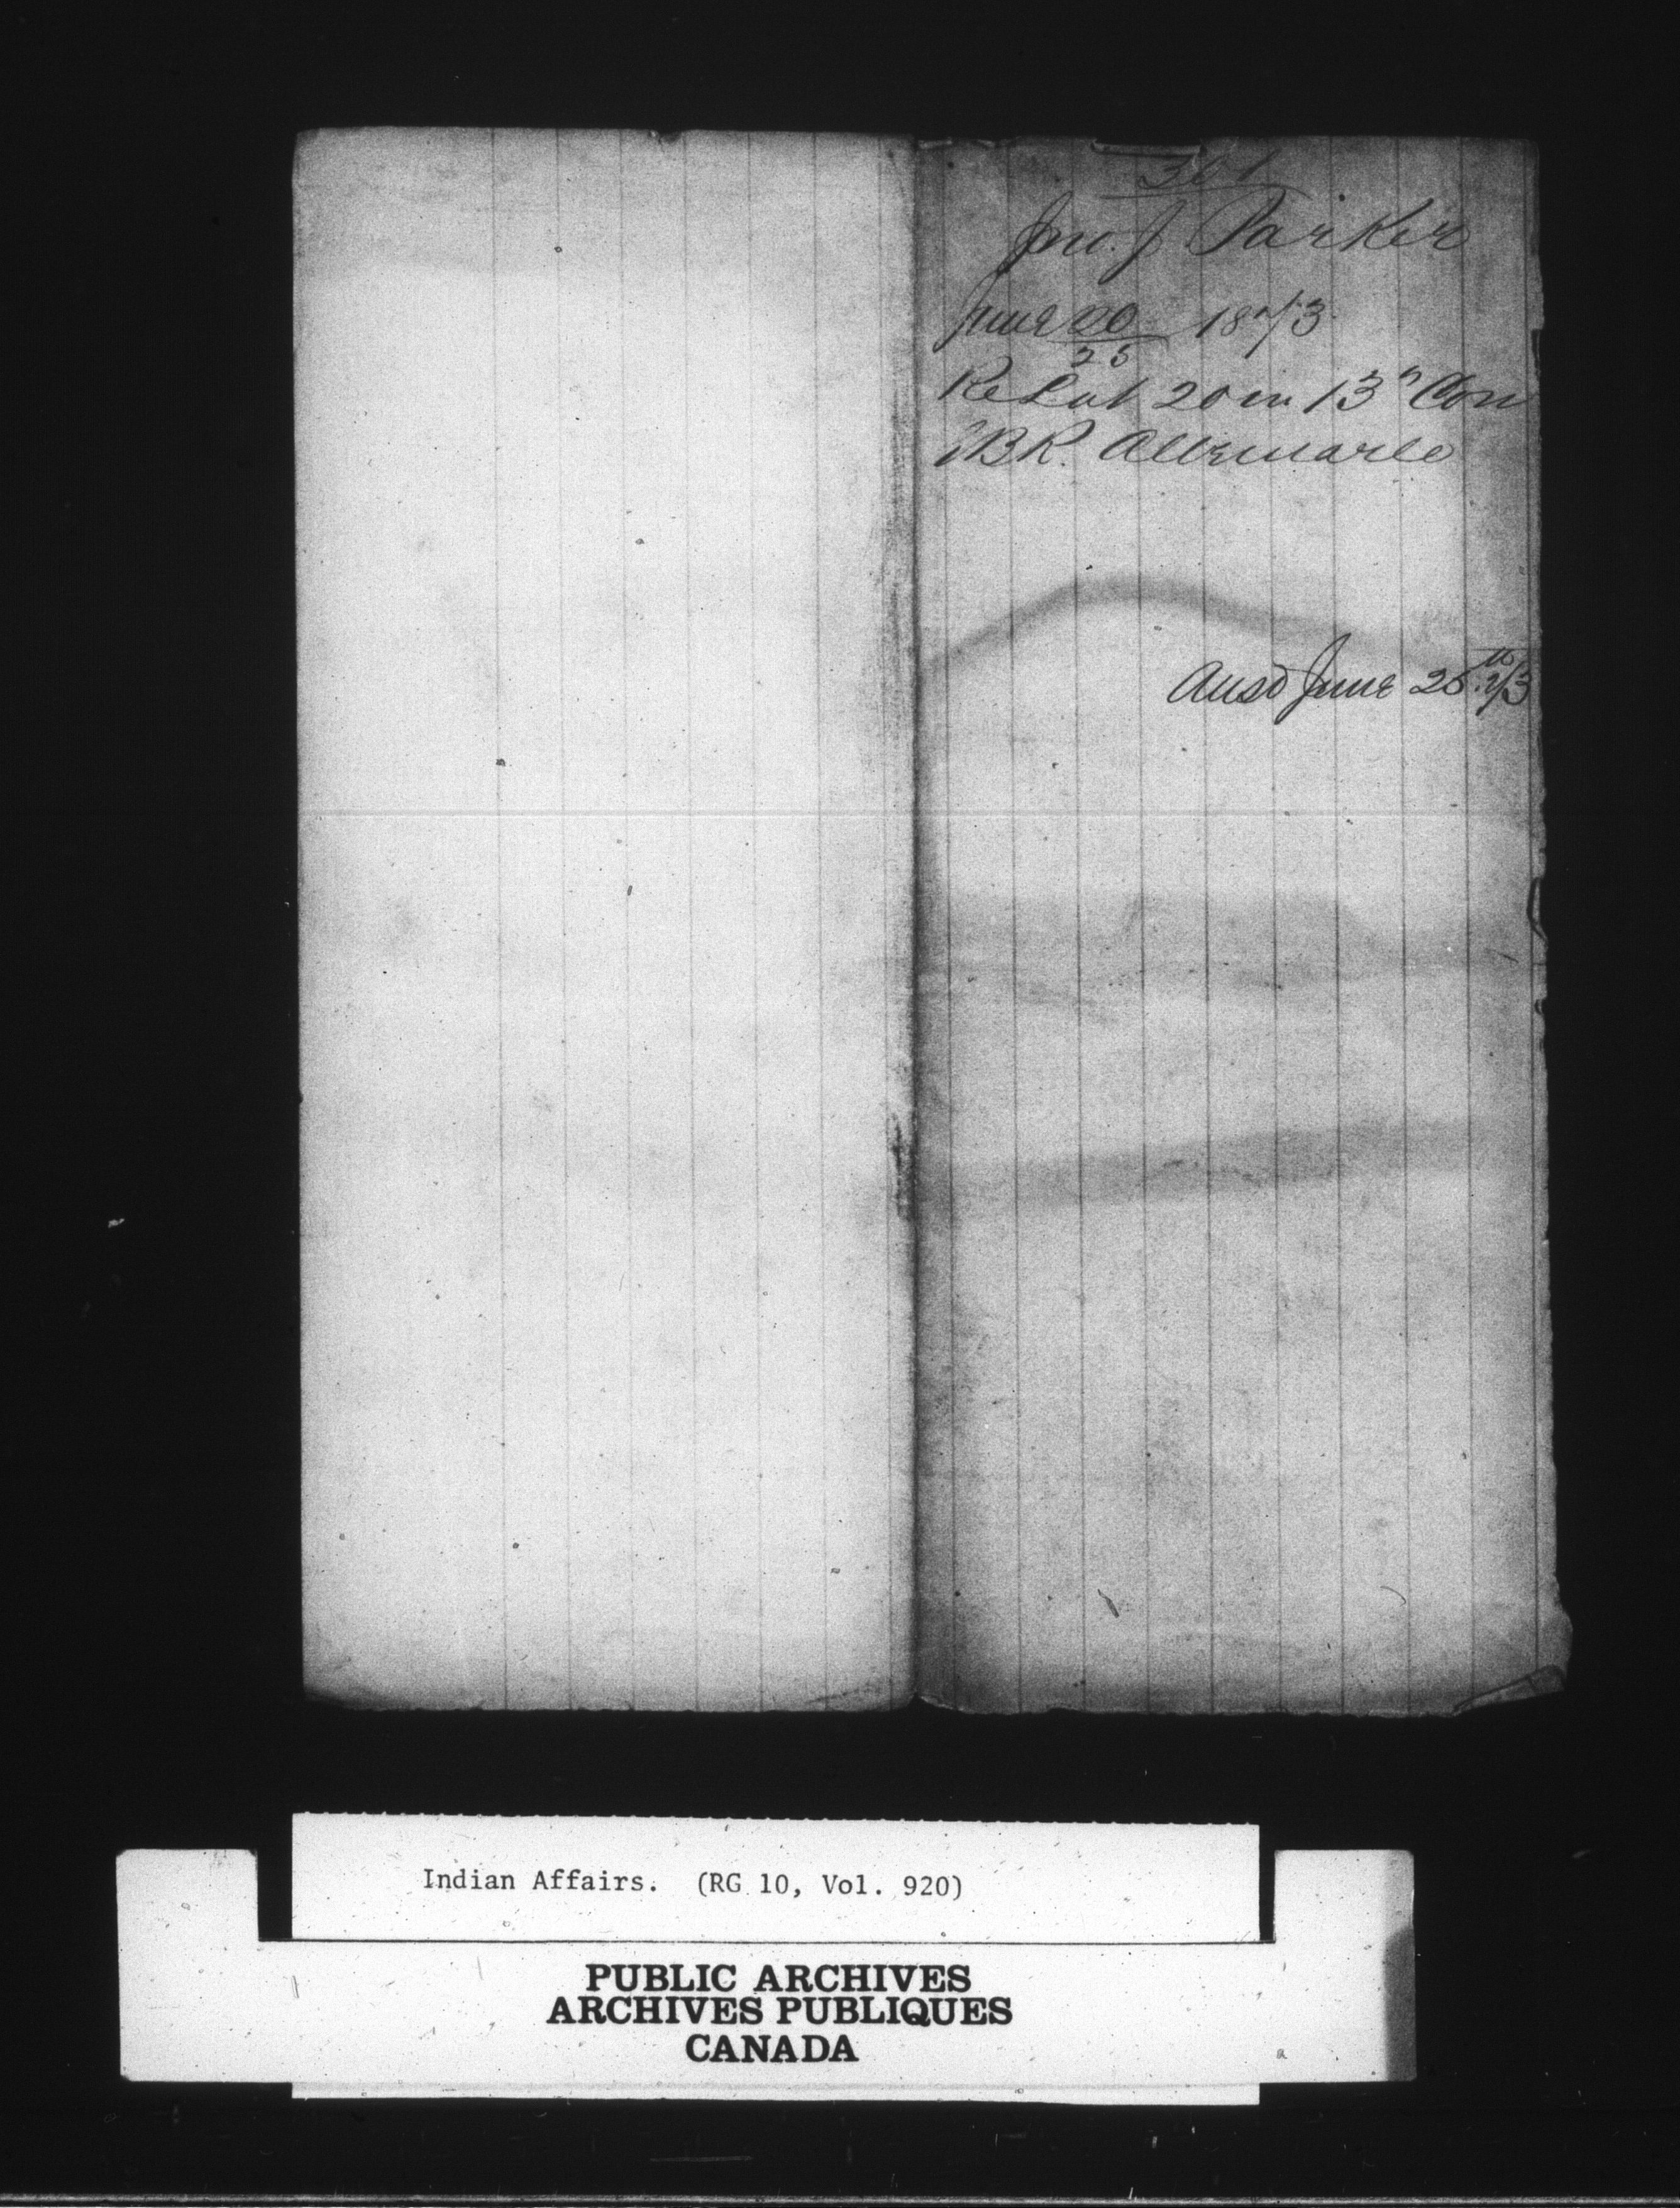 361
Jno. J Parker
June 20 1873
25
Re Lot 20 in 13" Con
EBR. Albemarle
Ansd June 26th /73
Indian Affairs. (RG 10, Vol. 920)
PUBLIC ARCHIVES
ARCHIVES PUBLIQUES
CANADA